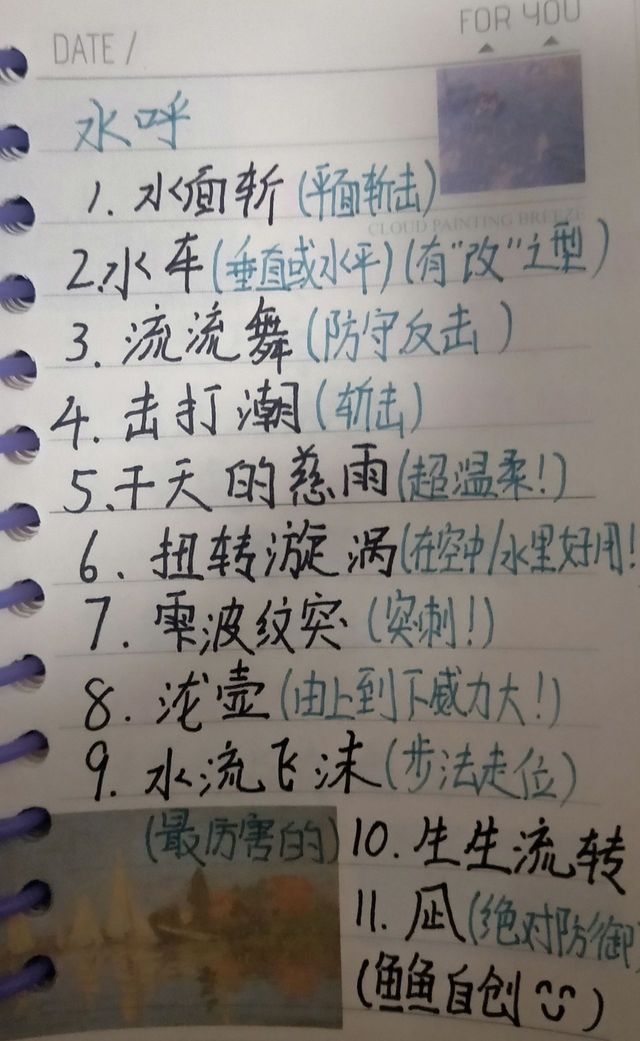 FOR YOU
DATE /
水呼
1. 水面斩(平面斩击)
CLOUD PAINTING BREEZE
2.水车(垂直或水平)(有"改"之型)
3. 流流舞(防守反击)
4. 击打潮(斩击)
5.干天的慈雨(超温柔!)
6. 扭转漩涡(在空中/水里好用!
7. 雫波纹突(突刺!)
8. 泷壶(由上到下威力大!)
9. 水流飞沫(步法走位)
(最厉害的)10. 生生流转
11. 凪(绝对防御)
(鱼鱼自创 ◡̈)